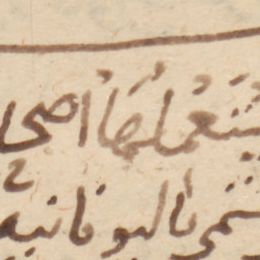 يستعملها أصحا
تسمى باليونانية